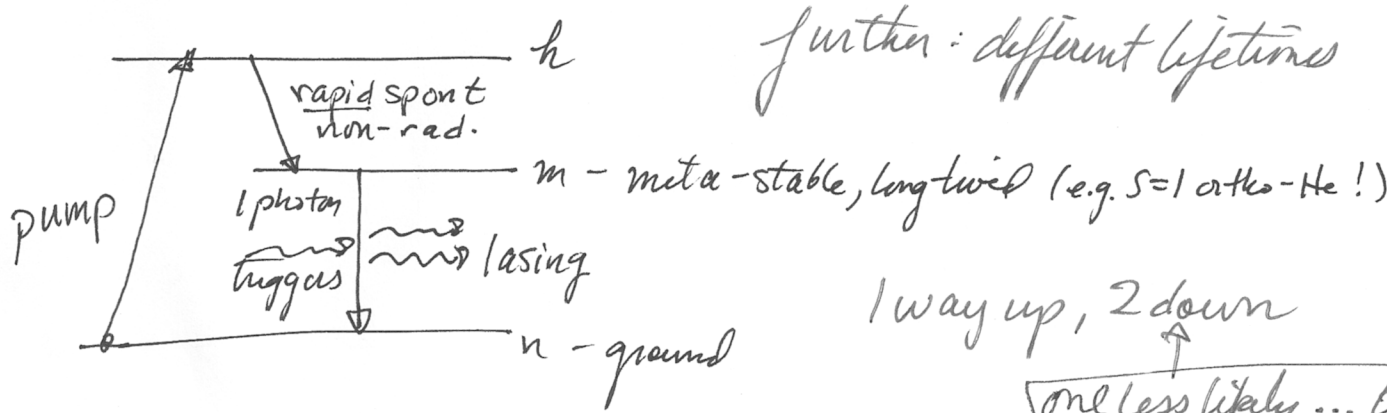 h
further: different lifetimes
rapid spont
non-rad.
m - meta-stable, long-lived (e.g. S=1 ortho-He!)
1 photon
pump
triggers
lasing
1 way up, 2 down
n - ground
one less likely...